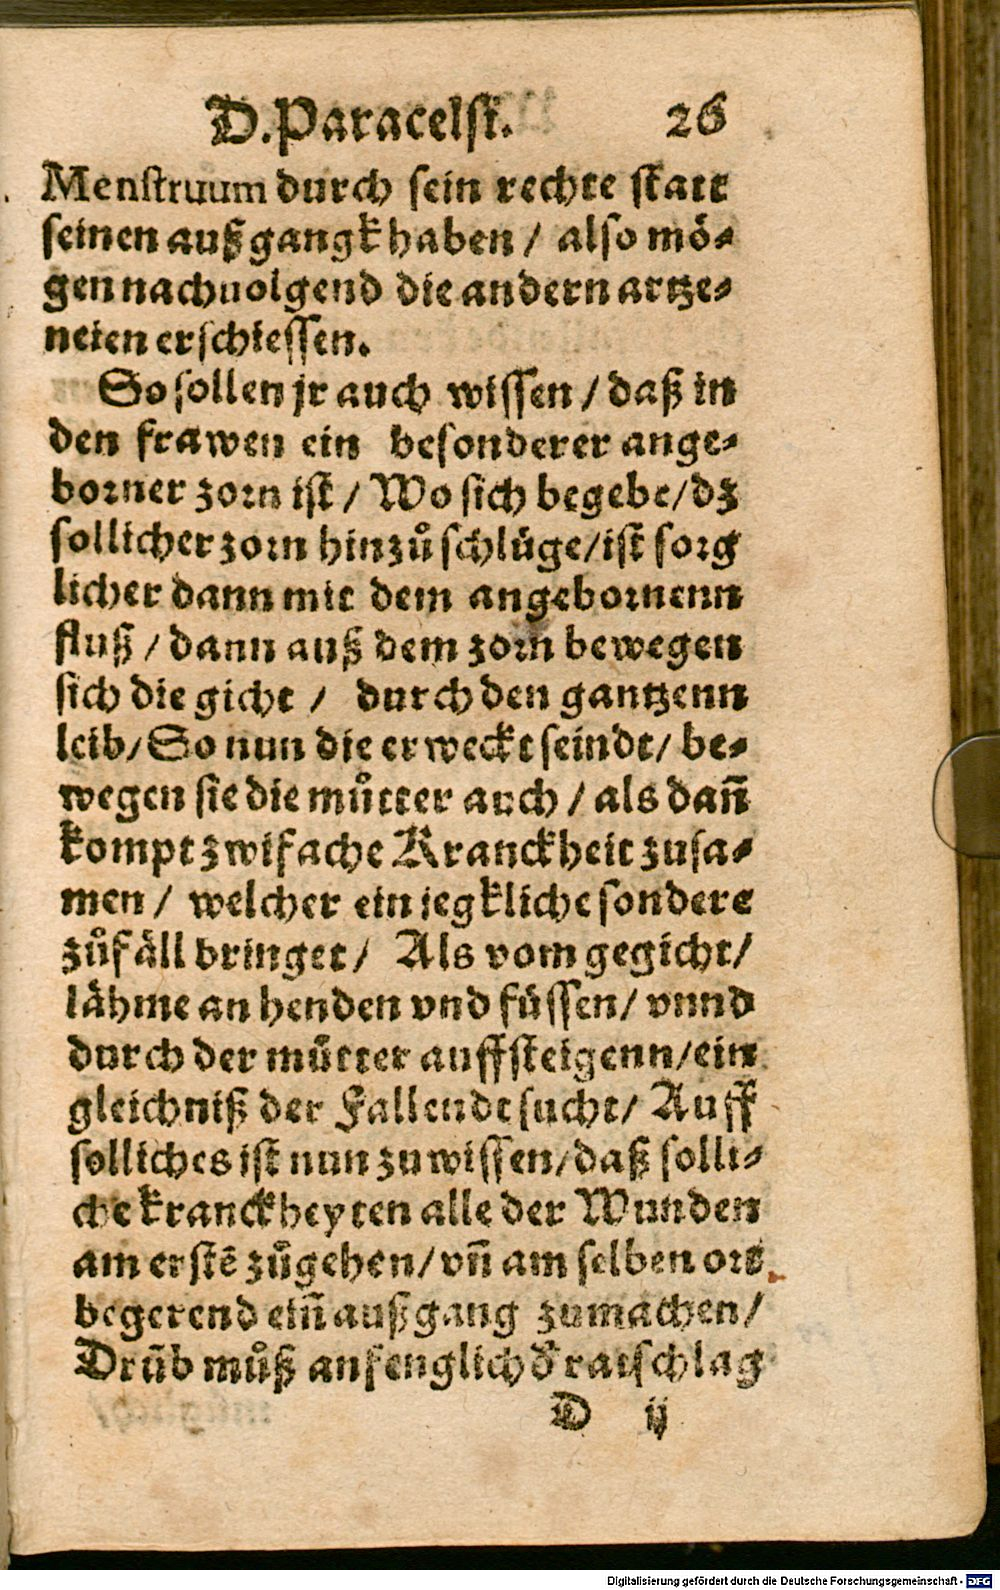 D. Paracelsi. 26
Menstruum durch sein rechte statt
seinen außgangk haben / also mö-
gen nachuolgend die andern artze-
neien erschiessen.
So sollen jr auch wissen / daß in
den frawen ein besonderer ange-
borner zorn ist / Wo sich begebe / dz
sollicher zorn hinzů schlüge / ist sorg
licher dann mit dem angebornenn
fluß / dann auß dem zorn bewegen
sich die gicht / durch den gantzenn
leib / So nun die erweckt seindt / be-
wegen sie die můtter auch / als dañ
kompt zwifache Kranckheit zusa-
men / welcher ein iegkliche sondere
zůfäll bringet / Als vom gegicht /
lähme an henden vnd füssen / vnnd
durch der můtter auffsteigenn / ein
gleichniß der Fallendt sucht / Auff
solliches ist nun zu wissen / daß solli-
che kranckheyten alle der Wunden
am erstē zůgehen / vñ am selben ort
begerend eiñ außgang zumachen /
Drüb můß anfenglich d' ratschlag
D ij
Digitalisierung gefördert durch die Deutsche Forschungsgemeinschaft - DFG